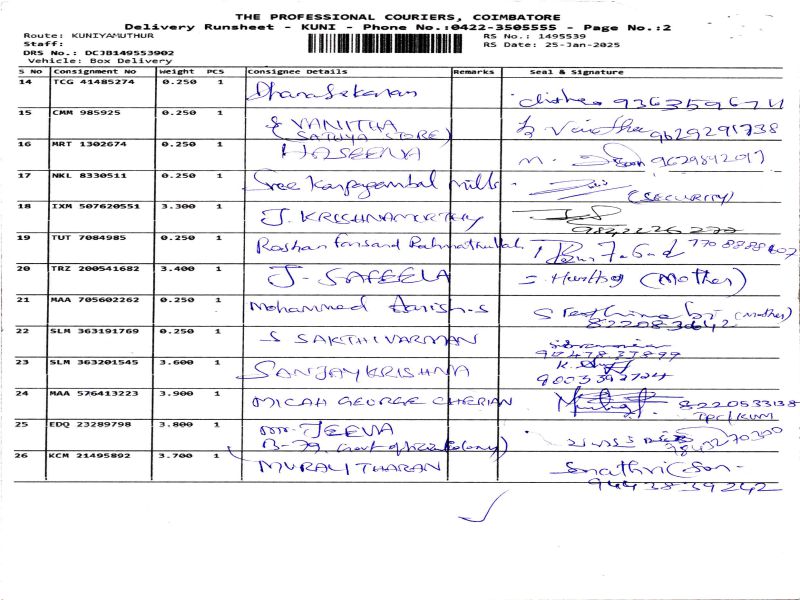 THE PROFESSIONAL COURIERS, COIMBATORE
Delivery Runsheet - KUNI - Phone No.:0422-3505555 - Page No.:2
Route: KUNIYAMUTHUR RS No.: 1495539
Staff: RS Date: 25-Jan-2025
DRS No.: DCJB149553902
Vehicle: Box Delivery
S No Consignment No Weight PCS Consignee Details Remarks Seal & Signature
14 TCG 41485274 0.250 1 Dhanasekaran
15 CMM 985925 0.250 1 S VANITHA 9629291738
(SATHYA STORE)
16 MRT 1302674 0.250 1 HASEENA M. 9629842017
17 NKL 8330511 0.250 1 Sree Karpagambal Mills
(SECURITY)
18 IXM 507620551 3.300 1 J. KRISHNAMURTHY
19 TUT 7084985 0.250 1 Roshan Rahmathullah
20 TRZ 200541682 3.400 1 J- SAFEELA (Mother)
21 MAA 705602262 0.250 1 Mohammed S (mother)
8220830642
22 SLM 363191769 0.250 1 S SAKTHIVARMAN
23 SLM 363201545 3.600 1 SANJAYKRISHNA K.
9003392724
24 MAA 576413223 3.900 1 MICAH GEORGE CHERIAN 8220533138
TPC/KUM
25 EDQ 23289798 3.800 1 MR. JEEVA
B-79, Govt officer colony) 7845270300
26 KCM 21495892 3.700 1 MURALITHARAN
9443839242